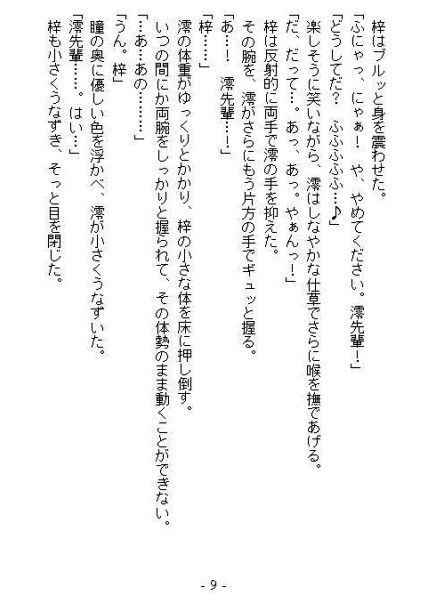 梓はブルッと身を震わせた。
「ふにゃっ、にゃぁ！　や、やめてください。澪先輩！」
「どうしてだ？　ふふふふふ…♪」
楽しそうに笑いながら、澪はしなやかな仕草でさらに喉を撫であげる。
「だ、だって…。あっ、あっ。やぁんっ！」
梓は反射的に両手で澪の手を抑えた。
その腕を、澪がさらにもう片方の手でギュッと握る。
「あ…！　澪先輩…！」
「梓……」
澪の体重がゆっくりとかかり、梓の小さな体を床に押し倒す。
いつの間にか両腕をしっかりと握られて、その体勢のまま動くことができない。
「…あ…あの………」
「うん。梓」
瞳の奥に優しい色を浮かべ、澪が小さくうなずいた。
「澪先輩……。はい…」
梓も小さくうなずき、そっと目を閉じた。
- 9 -